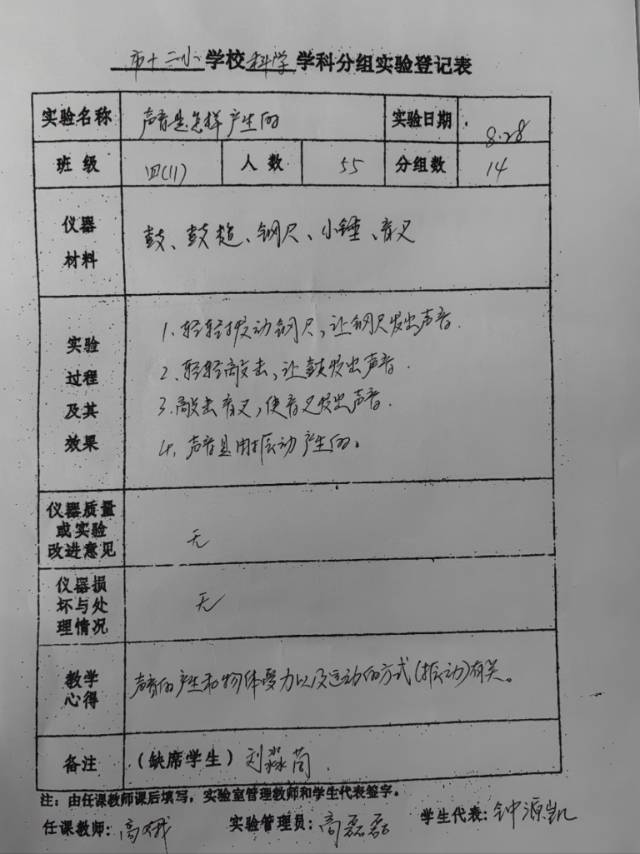 市十二小学校科学学科分组实验登记表
实验名称 声音是怎样产生的 实验日期 8.28
班级 四(11) 人数 55 分组数 14
仪器材料 鼓、鼓槌、钢尺、小锤、音叉
实验过程及其效果
1.轻轻拨动钢尺,让钢尺发出声音.
2.轻轻敲击,让鼓发出声音.
3.敲击音叉,使音叉发出声音.
4.声音是用振动产生的。
仪器质量或实验改进意见 无
仪器损坏与处理情况 无
教学心得 声音的产生和物体受力以及运动的方式(振动)有关。
备注 (缺席学生) 刘淼
注:由任课教师课后填写,实验室管理教师和学生代表签字。
任课教师:高 实验管理员:高磊磊 学生代表:钟源凯